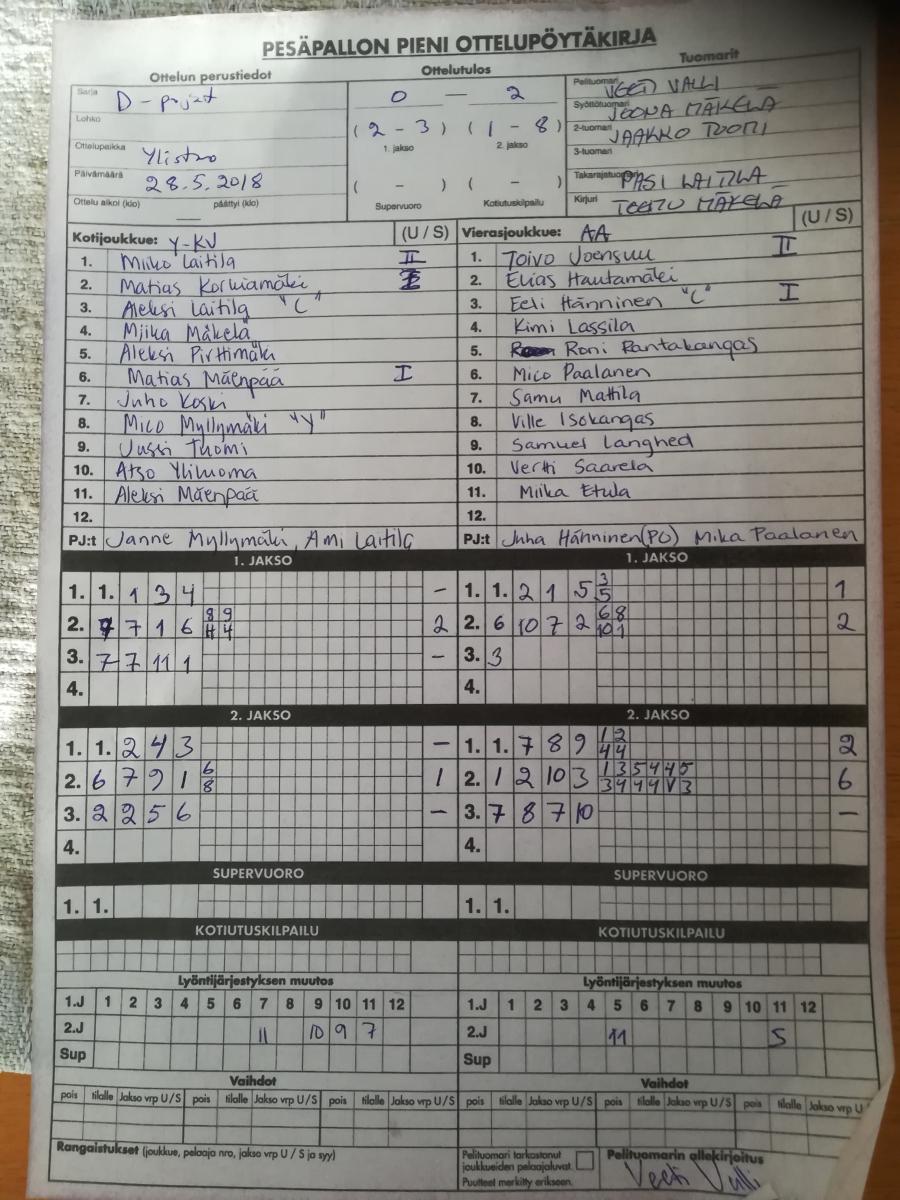 PESÄPALLON PIENI OTTELUPÖYTÄKIRJA
Ottelun perustiedot Ottelutulos Tuomarit
Sarja D-pojat 0 — 2 Pelituomari VEETI VALLI
Lohko (2 - 3) (1 - 8) Syöttötuomari JOONA MÄKELÄ
1. jakso 2. jakso 2-tuomari JAAKKO TUOMI
Ottelupaikka Ylistaro 3-tuomari
Päivämäärä 28.5.2018 ( - ) ( - ) Takarajatuomari PASI LAITILA
Ottelu alkoi (klo) päättyi (klo) Supervuoro Kotiutuskilpailu Kirjuri TEEMU MÄKELÄ
Kotijoukkue: Y-KV (U / S) Vierasjoukkue: AA (U / S)
1. Miiko Laitila II 1. Toivo Joensuu II
2. Matias Korkiamäki 2. Elias Hautamäki
3. Aleksi Laitila "C" 3. Eeli Hänninen "C" I
4. Miika Mäkelä 4. Kimi Lassila
5. Aleksi Pirttimäki 5. Roni Rantakangas
6. Matias Mäenpää I 6. Mico Paalanen
7. Juho Koski 7. Samu Mattila
8. Mico Myllymäki "Y" 8. Ville Isokangas
9. Jussi Tuomi 9. Samuel Langhed
10. Atso Yliluoma 10. Vertti Saarela
11. Aleksi Mäenpää 11. Miika Etula
12. 12.
PJ:t Janne Myllymäki, Ami Laitila PJ:t Juha Hänninen(PJ) Mika Paalanen
1. JAKSO 1. JAKSO
1. 1. 1 3 4 - 1. 1. 2 1 5 3/5 1
2. 7 7 1 6 8/4 9/4 2 2. 6 10 7 2 6/10 8/1 2
3. 7 7 11 1 - 3. 3
4. 4.
2. JAKSO 2. JAKSO
1. 1. 2 4 3 - 1. 1. 7 8 9 1/4 2/4 2
2. 6 7 9 1 6/8 1 2. 1 2 10 3 1/3 3/4 5/4 4/4 4/V 5/3 6
3. 2 2 5 6 - 3. 7 8 7 10 -
4. 4.
SUPERVUORO SUPERVUORO
1. 1. 1. 1.
KOTIUTUSKILPAILU KOTIUTUSKILPAILU
Lyöntijärjestyksen muutos Lyöntijärjestyksen muutos
1.J 1 2 3 4 5 6 7 8 9 10 11 12 1.J 1 2 3 4 5 6 7 8 9 10 11 12
2.J 11 10 9 7 2.J 11 5
Sup Sup
Vaihdot Vaihdot
pois tilalle Jakso vrp U / S pois tilalle Jakso vrp U / S pois tilalle Jakso vrp U / S pois tilalle Jakso vrp U / S pois tilalle Jakso vrp U / S pois tilalle Jakso vrp U
Rangaistukset (joukkue, pelaaja nro, jakso vrp U / S ja syy) Pelituomari tarkastanut joukkueiden pelaajaluvat. Pelituomarin allekirjoitus
Puutteet merkitty erikseen. Veeti Valli